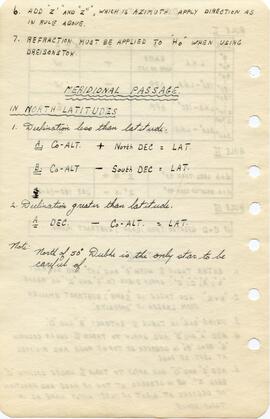 6. ADD "Z'" AND "Z"", WHICH IS AZIMUTH. APPLY DIRECTION AS
IN RULE ABOVE.
7. REFRACTION MUST BE APPLIED TO "Ho" WHEN USING
DREISONSTOK
MERIDIONAL PASSAGE.
IN NORTH LATITUDES
1. Declination less than latitude.
A. CO-ALT + NORTH DEC = LAT.
B. CO-ALT - SOUTH DEC = LAT.
2. Declination greater than latitude.
A DEC. - CO-ALT. = LAT.
Note: North of 50° Dubhe is the only star to be
careful of.